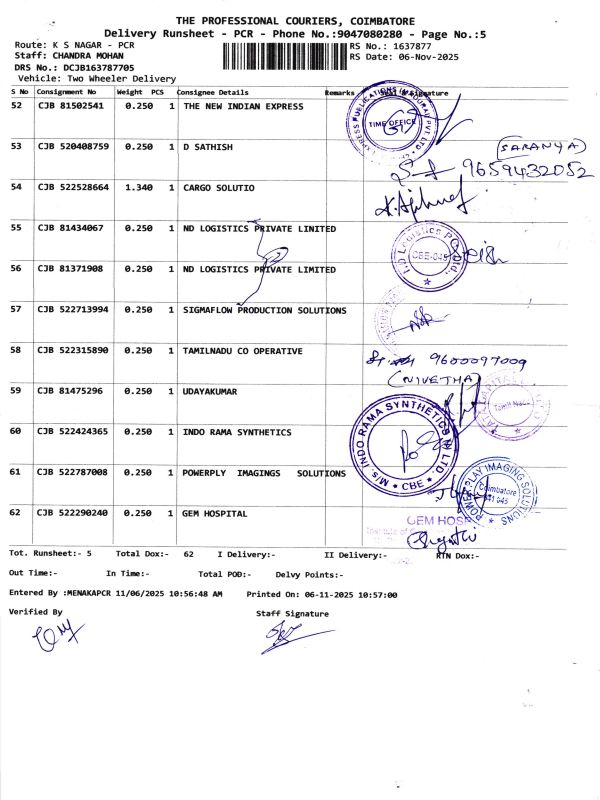 THE PROFESSIONAL COURIERS, COIMBATORE
Delivery Runsheet - PCR - Phone No.:9047080280 - Page No.:5
Route: K S NAGAR - PCR
RS No.: 1637877
Staff: CHANDRA MOHAN
RS Date: 06-Nov-2025
DRS No.: DCJB163787705
Vehicle: Two Wheeler Delivery
S No Consignment No Weight PCS Consignee Details Remarks Signature
52 CJB 81502541 0.250 1 THE NEW INDIAN EXPRESS
TIME OFFICE
53 CJB 520408759 0.250 1 D SATHISH
(SARANYA)
9659432052
54 CJB 522528664 1.340 1 CARGO SOLUTIO
55 CJB 81434067 0.250 1 ND LOGISTICS PRIVATE LINITED
56 CJB 81371908 0.250 1 ND LOGISTICS PRIVATE LIMITED
CBE-045
57 CJB 522713994 0.250 1 SIGMAFLOW PRODUCTION SOLUTIONS
58 CJB 522315890 0.250 1 TAMILNADU CO OPERATIVE
9600097009
(NIVETHA)
59 CJB 81475296 0.250 1 UDAYAKUMAR
60 CJB 522424365 0.250 1 INDO RAMA SYNTHETICS
M/s. INDO RAMA SYNTHETICS (I) LTD.
* CBE *
61 CJB 522787008 0.250 1 POWERPLY IMAGINGS SOLUTIONS
POWERPLAY IMAGING SOLUTIONS
Coimbatore
641 045
62 CJB 522290240 0.250 1 GEM HOSPITAL
GEM HOSP
Tot. Runsheet:- 5 Total Dox:- 62 I Delivery:- II Delivery:- RTN Dox:-
Out Time:- In Time:- Total POD:- Delvy Points:-
Entered By :MENAKAPCR 11/06/2025 10:56:48 AM Printed On: 06-11-2025 10:57:00
Verified By Staff Signature